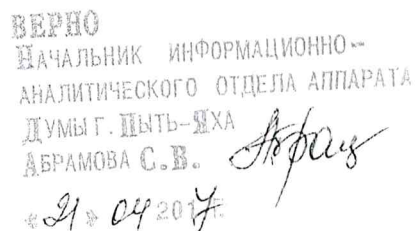 ВЕРНО
НАЧАЛЬНИК ИНФОРМАЦИОННО-
АНАЛИТИЧЕСКОГО ОТДЕЛА АППАРАТА
ДУМЫ Г. ПЫТЬ-ЯХА
АБРАМОВА С.В.
«21» 04 2017г.